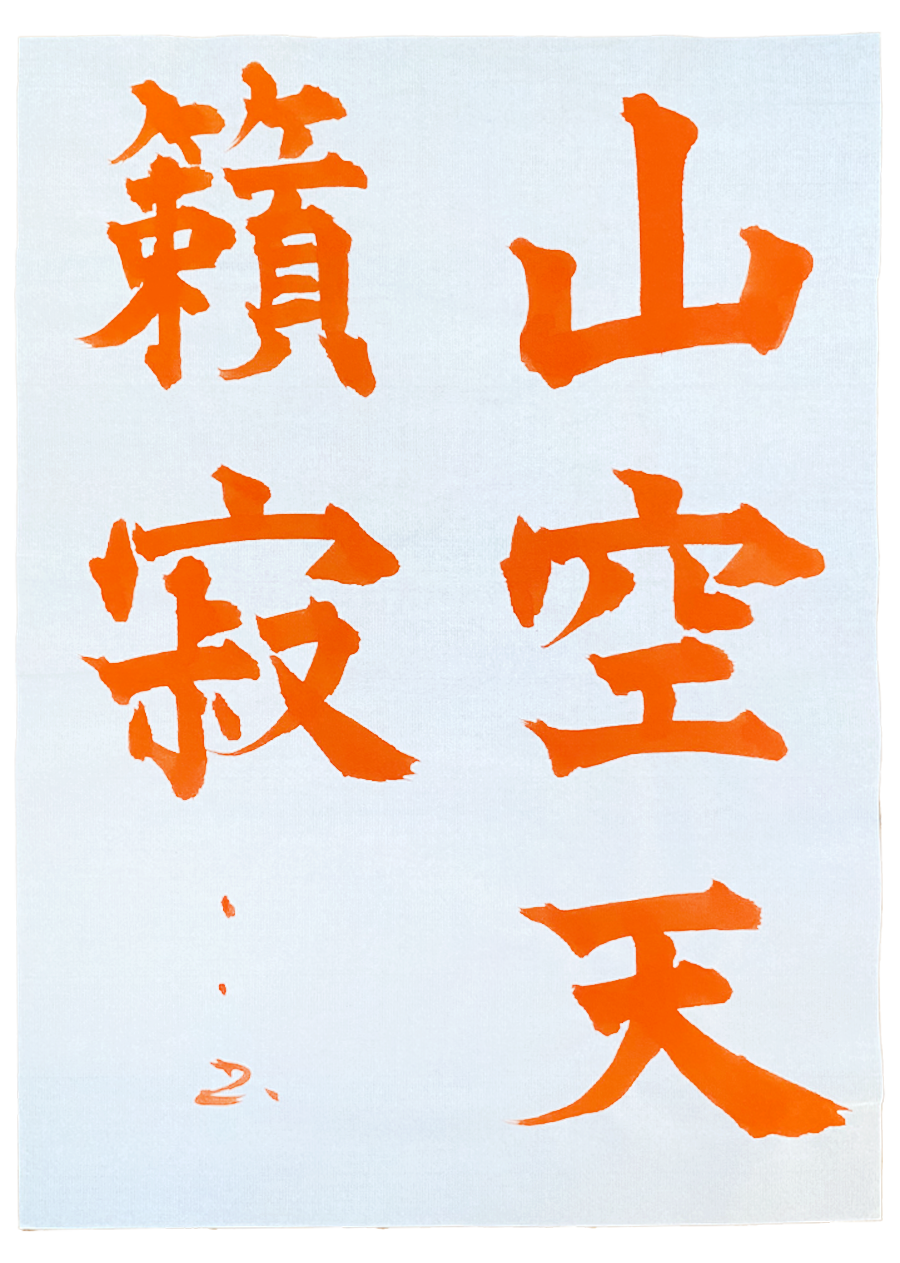 山空天
籟寂
: 2、